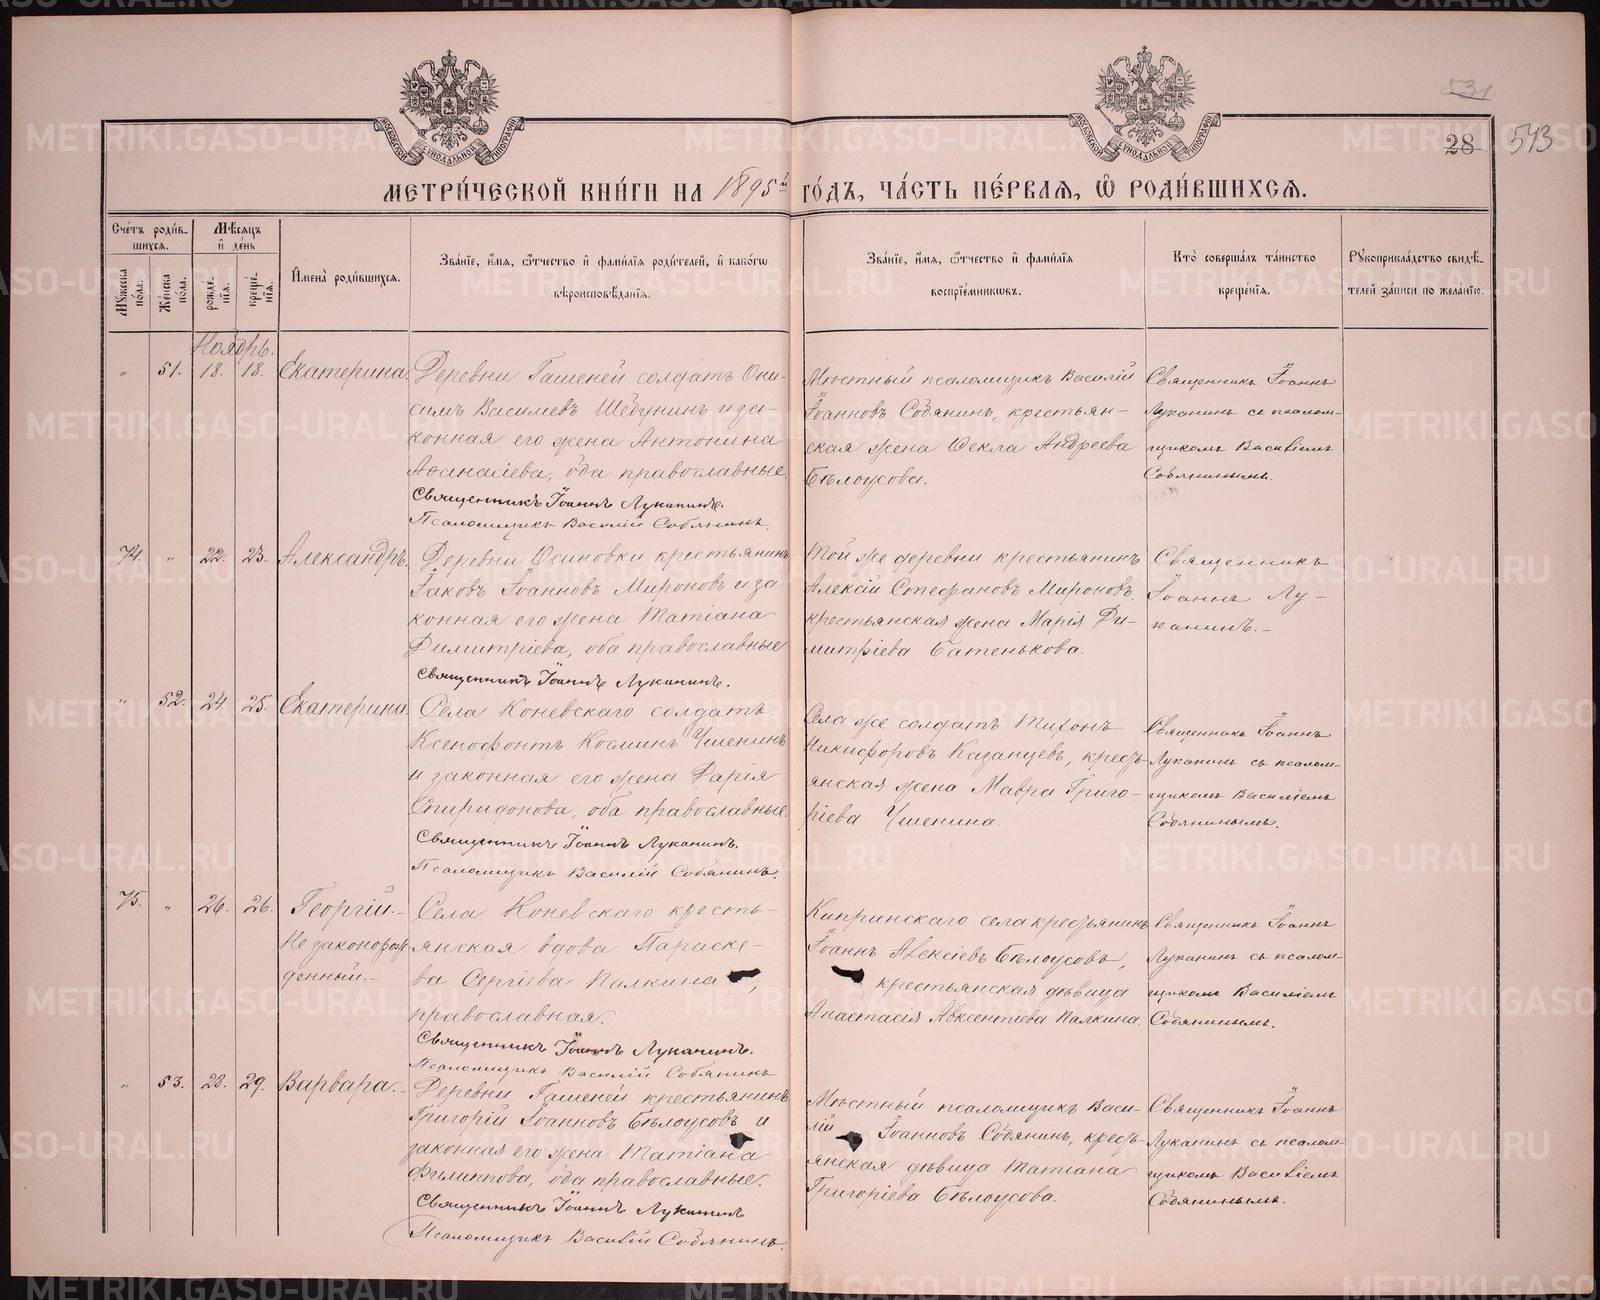 531
28 543
МОСКОВСКОЙ СѴНОДАЛЬНОЙ ТИПОГРАФІИ
МОСКОВСКОЙ СѴНОДАЛЬНОЙ ТИПОГРАФІИ
МЕТРИ́ЧЕСКОЙ КНИ́ГИ НА 1895й ГО́ДЪ, ЧА́СТЬ ПЕ́РВАЯ, Ѡ РОДИ́ВШИХСЯ.
Сче́тъ роди́в-
шихся.
Му́жеска по́ла.
Же́нска по́ла.
Мѣ́сяцъ
и҆ де́нь
рожде́-
нїѧ.
креще́-
нїѧ.
И҆мена̀ роди́вшихся.
Зва́нїе, и҆́мѧ, ѻ҆́тчество и҆ фами́лїѧ роди́телей, и҆ како́гѡ
вѣроисповѣ́данїѧ.
Зва́нїе, и҆́мѧ, ѻ҆́тчество и҆ фами́лїѧ
воспрїе́мникѡвъ.
Кто̀ соверша́лъ та́инство
креще́нїѧ.
Рꙋкоприкла́дство свидѣ́-
телей за́писи по жела́нїю.
Ноябрь.
„ 51. 18. 18. Екатерина.
Деревни Гашеней солдатъ Они-
симъ Василіевъ Шедунинъ и за-
конная его жена Антонина
Аѳанасіева, оба православные.
Священникъ Іоаннъ Луканинъ.
Псаломщикъ Василій Собянинъ.
Мѣстный псаломщикъ Василій
Іоанновъ Собянинъ, крестьян-
ская жена Ѳекла Андреева
Бѣлоусова.
Священникъ Іоаннъ
Луканинъ съ псалом-
щикомъ Василіемъ
Собянинымъ.
74. „ 22. 23. Александръ.
Деревни Осиновки крестьянинъ
Іаковъ Іоанновъ Мироновъ и за-
конная его жена Татіана
Димитріева, оба православные.
Священникъ Іоаннъ Луканинъ.
Той же деревни крестьянинъ
Алексій Стефановъ Мироновъ,
крестьянская жена Марія Ди-
митріева Батенькова.
Священникъ
Іоаннъ Лу-
канинъ.-
„ 52. 24 25. Екатерина.
Села Коневскаго солдатъ
Ксенофонтъ Косминъ Ушенинъ
и законная его жена Дарія
Спиридонова, оба православные.
Священникъ Іоаннъ Луканинъ.
Псаломщикъ Василій Собянинъ.
Села же солдатъ Тихонъ
Никифоровъ Казанцевъ, кресть-
янская жена Мавра Григо-
ріева Ушенина.
Священникъ Іоаннъ
Луканинъ съ псалом-
щикомъ Василіемъ
Собянинымъ.
75. „ 26. 26. Георгій.-
Незаконорож-
денный.-
Села Коневскаго кресть-
янская вдова Параске-
ва Сергіева Палкина,
православная.
Священникъ Іоаннъ Луканинъ.
Псаломщикъ Василій Собянинъ
Кипринскаго села крестьянинъ
Іоаннъ Алексіевъ Бѣлоусовъ,
крестьянская дѣвица
Анастасія Авксентіева Палкина.
Священникъ Іоаннъ
Луканинъ съ псалом-
щикомъ Василіемъ
Собянинымъ.
„ 53. 28. 29. Варвара.-
Деревни Гашеней крестьянинъ
Григорій Іоанновъ Бѣлоусовъ и
законная его жена Татіана
Филиппова, оба православные.
Священникъ Іоаннъ Луканинъ
Псаломщикъ Василій Собянинъ.
Мѣстный псаломщикъ Васи-
лій Іоанновъ Собянинъ, кресть-
янская дѣвица Татіана
Григоріева Бѣлоусова.
Священникъ Іоаннъ
Луканинъ съ псалом-
щикомъ Василіемъ
Собянинымъ.
METRIKI.GASO-URAL.RU